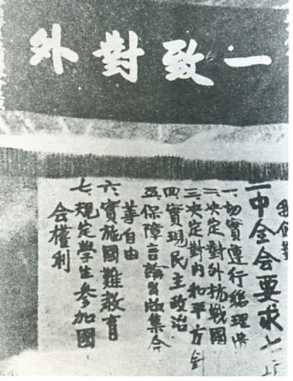 一致對外
二中全会要求七
一、切實遵行總理
二、決定對外抗戰國
三、決定對内和平方針
四、實現民主政治
五、保障言論出版集会
等自由
六、實施國難教育
七、規定學生參加國
会權利